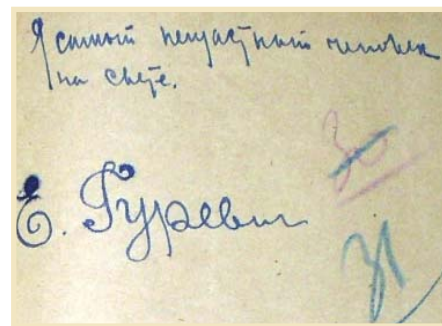 Я самый несчастный человек
на свете.
Е. Гуревич
30
31